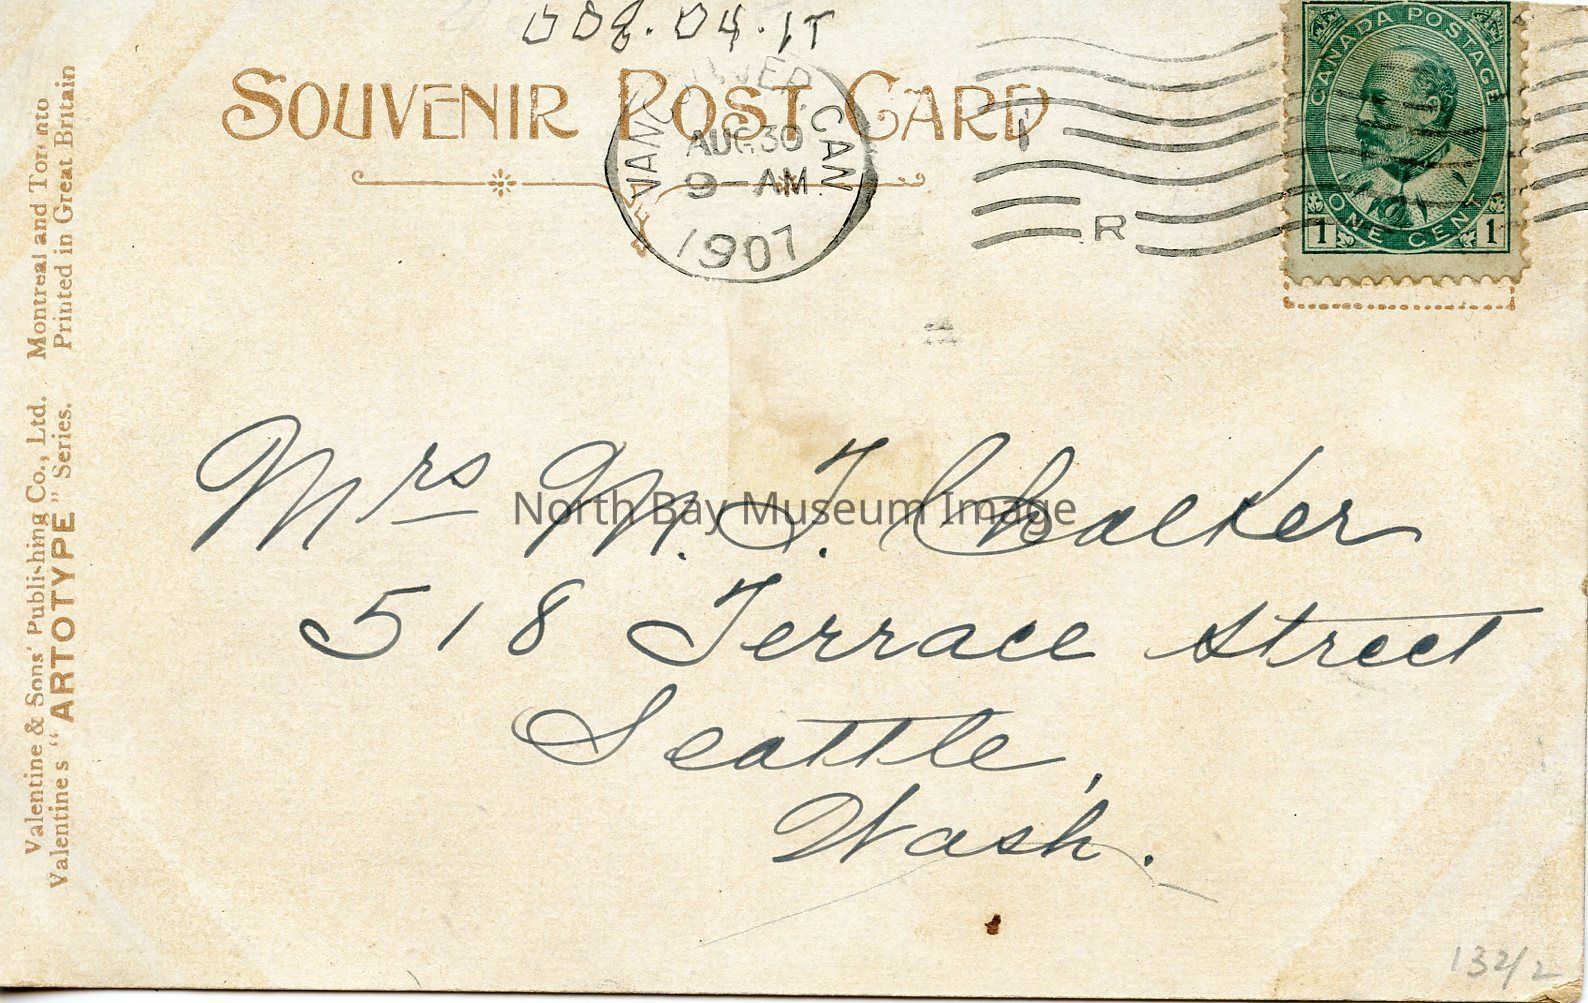 008.04.17
SOUVENIR POST CARD
VANCOUVER, CAN
AUG 30
9-AM
1907
R
CANADA POSTAGE
ONE CENT
1 1
Valentine & Sons' Publishing Co., Ltd. Montreal and Toronto
Valentine's "ARTOTYPE" Series. Printed in Great Britain
Mrs M. T. Walker
North Bay Museum Image
518 Terrace Street
Seattle,
Wash.
132/2